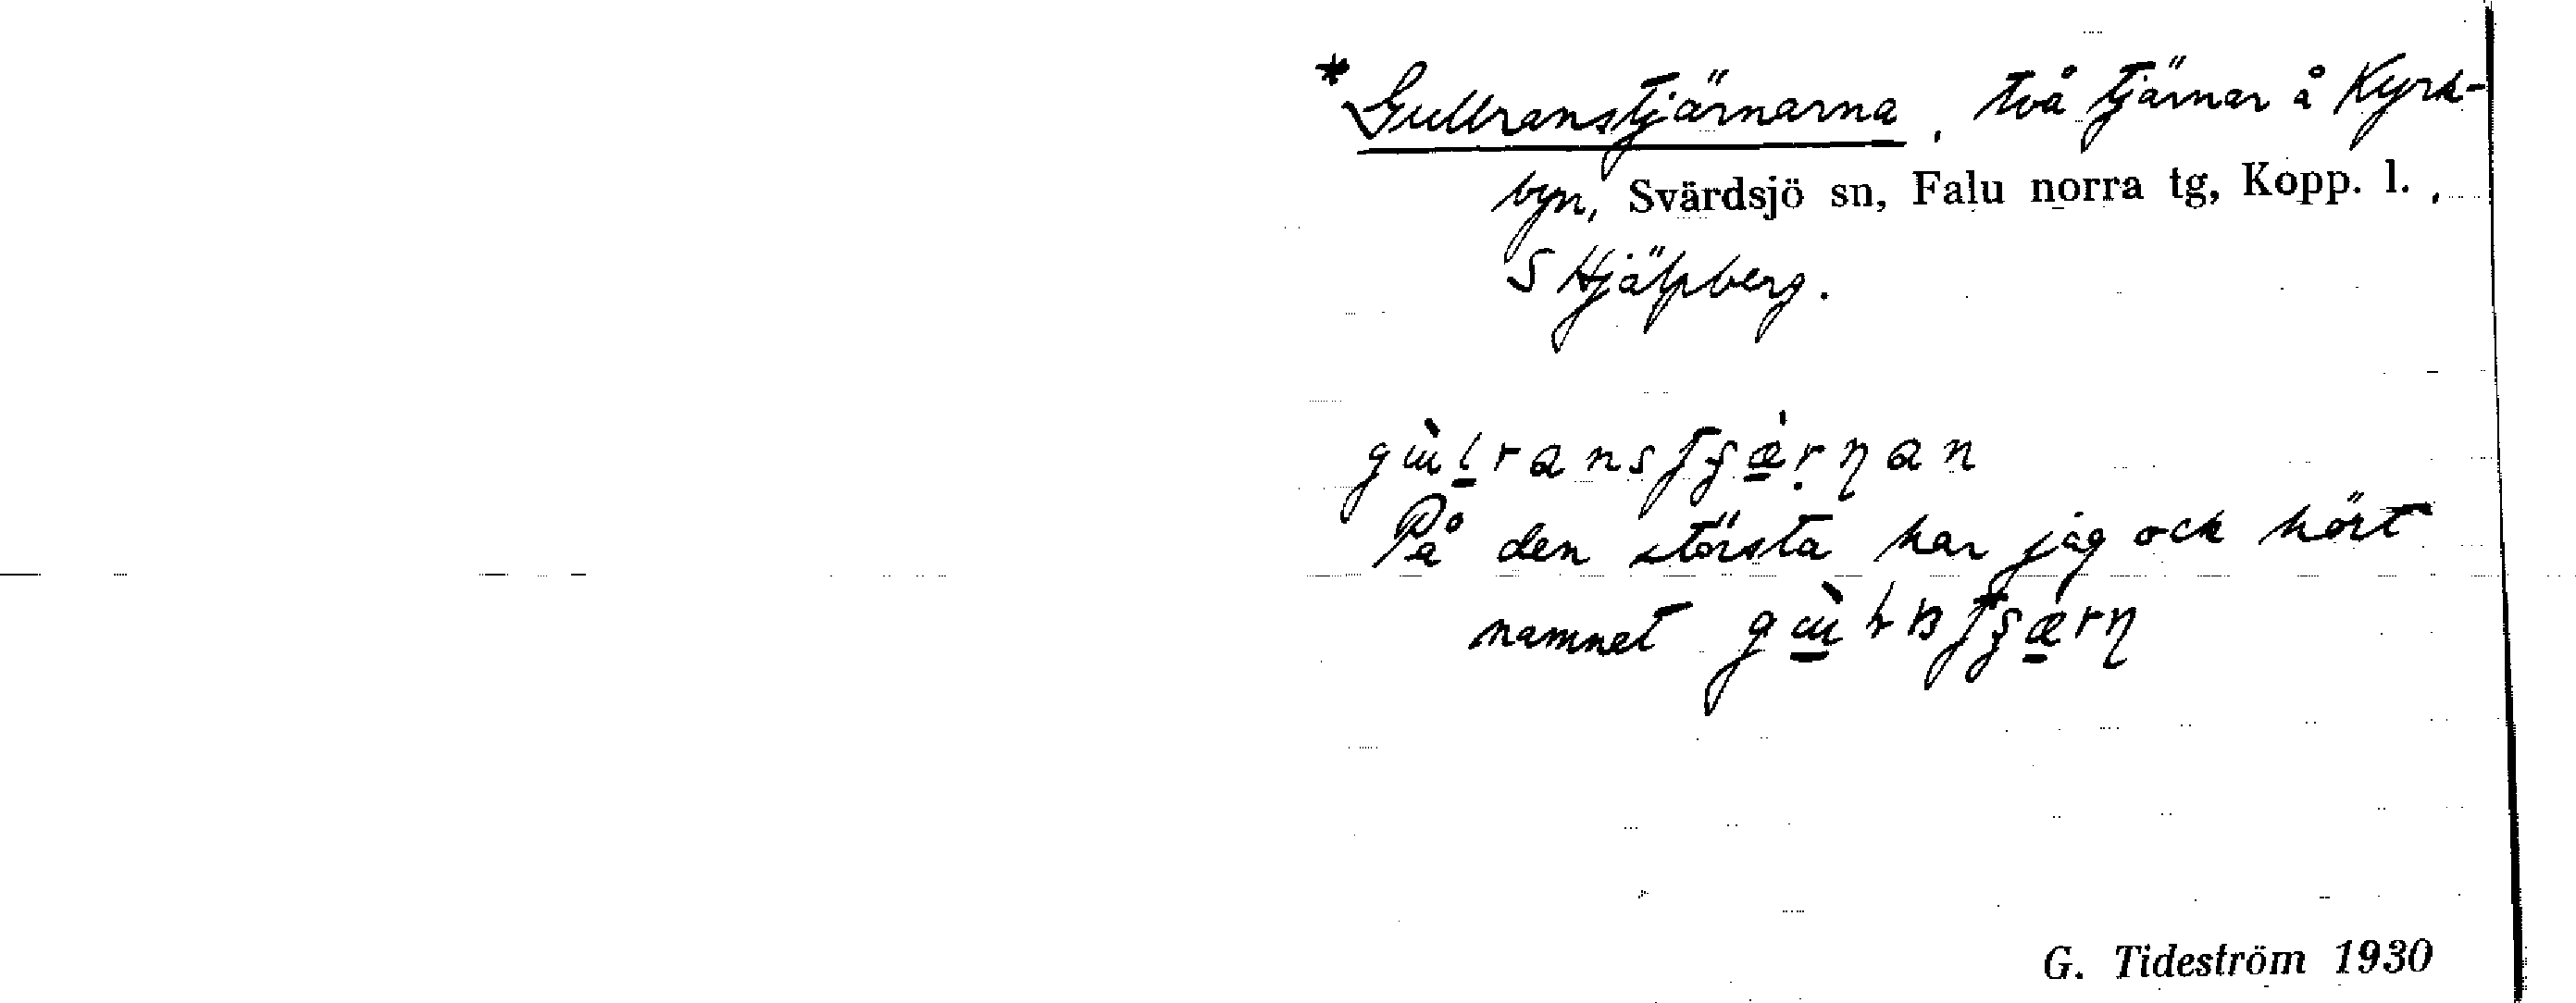 * Gullranstjärnarna, två tjärnar å Kyrk-
byn, Svärdsjö sn, Falu norra tg, Kopp. l.,
S Hjälpberg.
På den största har jag ock hört
namnet
G. Tideström 1930